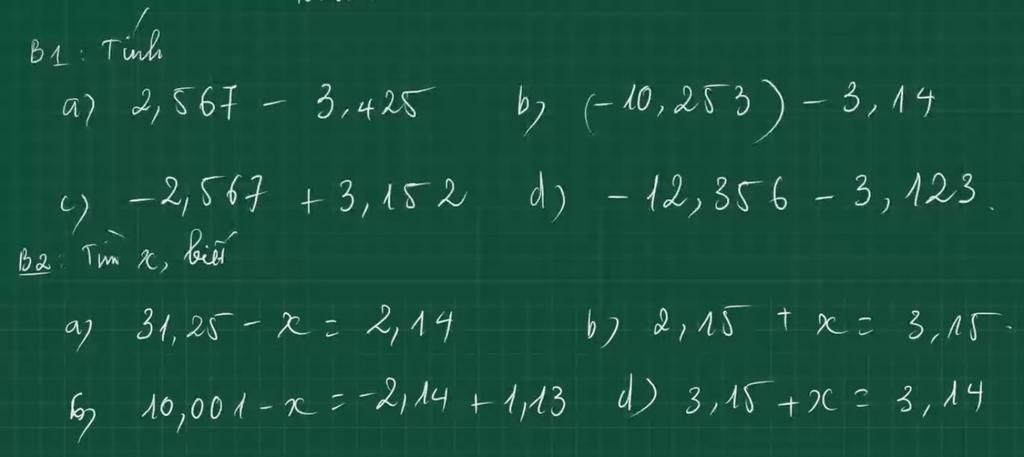 B1: Tính
a) 2,567 - 3,425 b) (-10,253) - 3,14
c) -2,567 + 3,152 d) -12,356 - 3,123.
B2: Tìm x, biết
a) 31,25 - x = 2,14 b) 2,15 + x = 3,15.
b) 10,001 - x = -2,14 + 1,13 d) 3,15 + x = 3,14